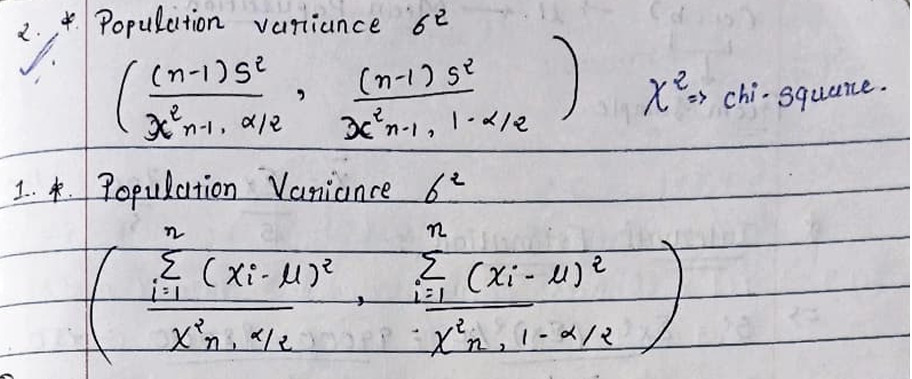 2. * Population variance σ²
( (n-1) S² / χ²n-1, α/2 , (n-1) S² / χ²n-1, 1-α/2 ) χ² => chi-square.
1. * Population Variance σ²
( n Σ i=1 (xi-μ)² / χ²n, α/2 , n Σ i=1 (xi-μ)² / χ²n, 1-α/2 )